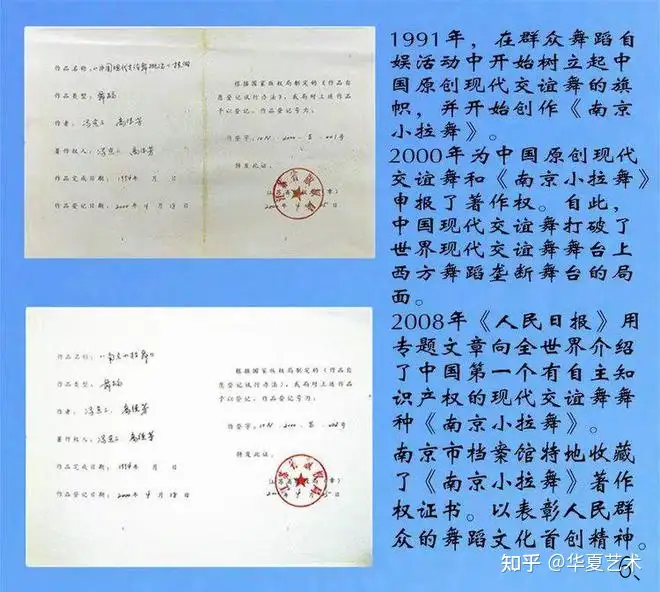 作品名称：《中国现代交谊舞概论》挂图
作品类型：舞蹈
作者：
著作权人：
作品完成日期：1994年 月 日
作品登记日期：2000年4月18日
根据国家版权局制定的《作品自
愿登记试行办法》，我局对上述作品
予以登记。作品登记号为：
作登字：10-N-2000-第-001号
特发此证。
作品名称：《南京小拉舞》
作品类型：舞蹈
作者：
著作权人：
作品完成日期：1994年 月 日
作品登记日期：2000年4月18日
根据国家版权局制定的《作品自
愿登记试行办法》，我局对上述作品
予以登记。作品登记号为：
特发此证。
1991年，在群众舞蹈自
娱活动中开始树立起中
国原创现代交谊舞的旗
帜，并开始创作《南京
小拉舞》。
2000年为中国原创现代
交谊舞和《南京小拉舞》
申报了著作权。自此，
中国现代交谊舞打破了
世界现代交谊舞舞台上
西方舞蹈垄断舞台的局
面。
2008年《人民日报》用
专题文章向全世界介绍
了中国第一个有自主知
识产权的现代交谊舞舞
种《南京小拉舞》。
南京市档案馆特地收藏
了《南京小拉舞》著作
权证书。以表彰人民群
众的舞蹈文化首创精神。
知乎 @华夏艺术
6、